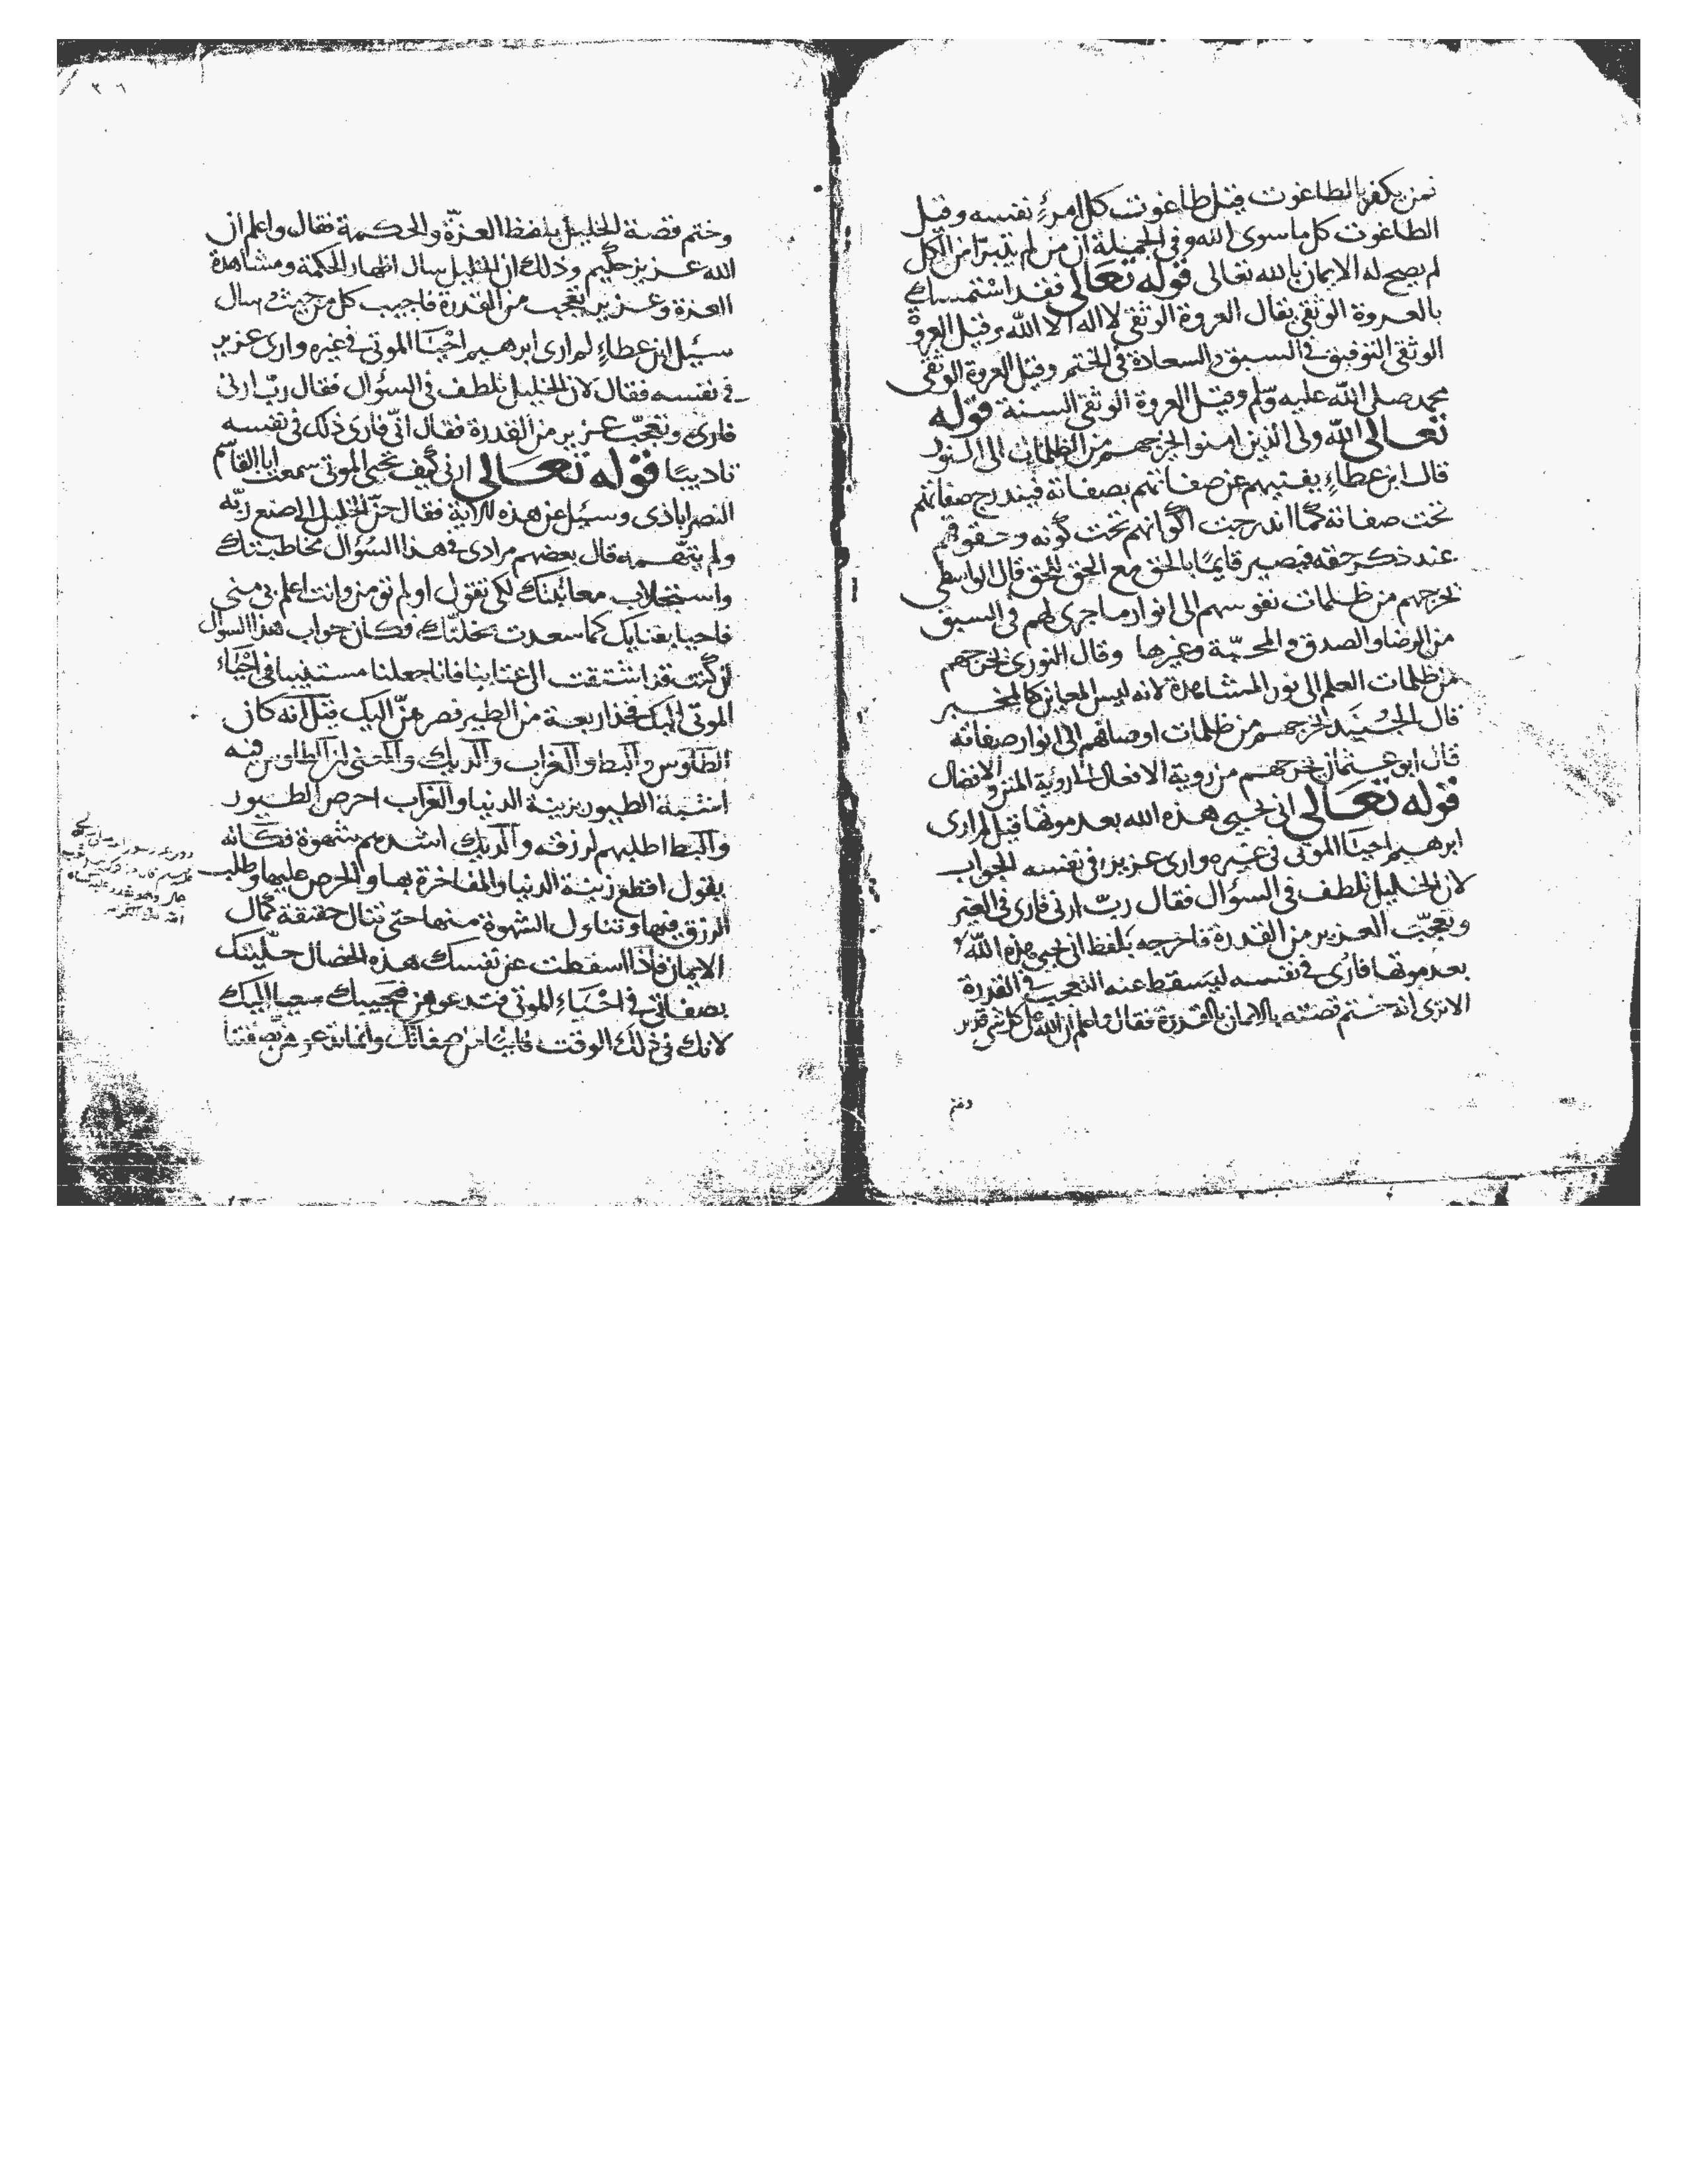 فمن يكفر بالطاغوت قيل طاغوت كل امرئ نفسه وقيل
الطاغوت كل ما سوى الله وفى الجملة ان من لم يتبرا من الكل
لم يصح له الايمان بالله تعالى قوله تعالى فقد استمسك
بالعروة الوثقى يقال العروة الوثقى لا اله الا الله وقيل العروة
الوثقى التوفيق فى السبق والسعادة فى الختم وقيل العروة الوثقى
محمد صلى الله عليه وسلم وقيل العروة الوثقى السنة قوله
تعالى الله ولى الذين امنوا يخرجهم من الظلمات الى النور
قال ابن عطاء يفنيهم عن صفاتهم بصفاته فيندرج صفاتهم
تحت صفاته كما اندرجت اكوانهم تحت كونه وحقوقهم
عند ذكر حقه فيصير قايما بالحق مع الحق للحق قال الواسطى
يخرجهم من ظلمات نفوسهم الى انوار ما جرى لهم فى السبق
من الرضا والصدق والمحبة وغيرها وقال النورى يخرجهم
من ظلمات العلم الى نور المشاهدة لانه ليس المعاين كالمخبر
قال الجنيد يخرجهم من ظلمات اوصافهم الى انوار صفاته
قال ابو عثمان يخرجهم من روية الافعال الى روية المنن والافضال
قوله تعالى انى يحيى هذه الله بعد موتها قيل لم ارى
ابرهيم احيا الموتى فى غيره وارى عزير فى نفسه الجواب
لان الخليل تلطف فى السؤال فقال رب ارنى فارى فى الغير
وتعجب العزير من القدرة فاخرجه بلفظ انى يحيى هذه الله
بعد موتها فارى فى نفسه ليسقط عنه التعجب فى القدرة
الا ترى انه ختم قصته بالايمان بالقدرة فقال اعلم ان الله على كل شى قدير
وختم
٢٠٦
وختم قصة الخليل بلفظ العزة والحكمة فقال واعلم ان
الله عزيز حكيم وذلك ان الخليل سال اظهار الحكمة ومشاهدة
العزة وعزير تعجب من القدرة فاجيب كل من حيث سال
سئيل ابن عطاء لم ارى ابرهيم احيا الموتى فى غيره وارى عزير
فى نفسه فقال لان الخليل تلطف فى السؤال فقال رب ارنى
فارى وتعجب عزير من القدرة فقال انى فارى ذلك فى نفسه
تاديبا قوله تعالى ارنى كيف تحيى الموتى سمعت ابا القاسم
النصراباذى وسئيل عن هذه الاية فقال حن الخليل الى صنع ربه
ولم يتهمه قال بعضهم مرادى فى هذا السؤال مخاطبتك
واستجلاب معاتبتك لكى تقول اولم تومن وانت اعلم بى منى
فاحيا بعتابك كما سعدت بخلتك فكان جواب هذا السؤال
ان كنت قد اشتقت الى عتابنا فانا جعلنا فى احياء
الموتى اليك فخذ اربعة من الطير فصرهن اليك قيل انه كان
الطاوس والبط والغراب والديك والمعنى ان الطاوس فيه
اشبه الطيور بزينة الدنيا والغراب احرص الطيور
والبط اطلبهم لرزقه والديك اشدهم شهوة فكانه
يقول اقطع زينة الدنيا والمفاخرة بها والحرص عليها وطلب
الرزق فيها وتناول الشهوة منها حتى تنال حقيقة كمال
الايمان فاذا اسقطت عن نفسك هذه الخصال حليتك
بصفاتى فى احياء الموتى فتدعوهن فتجيبك سعيا اليك
لانك فى ذلك الوقت من صفاتك وانما تدعوهن بصفتنا